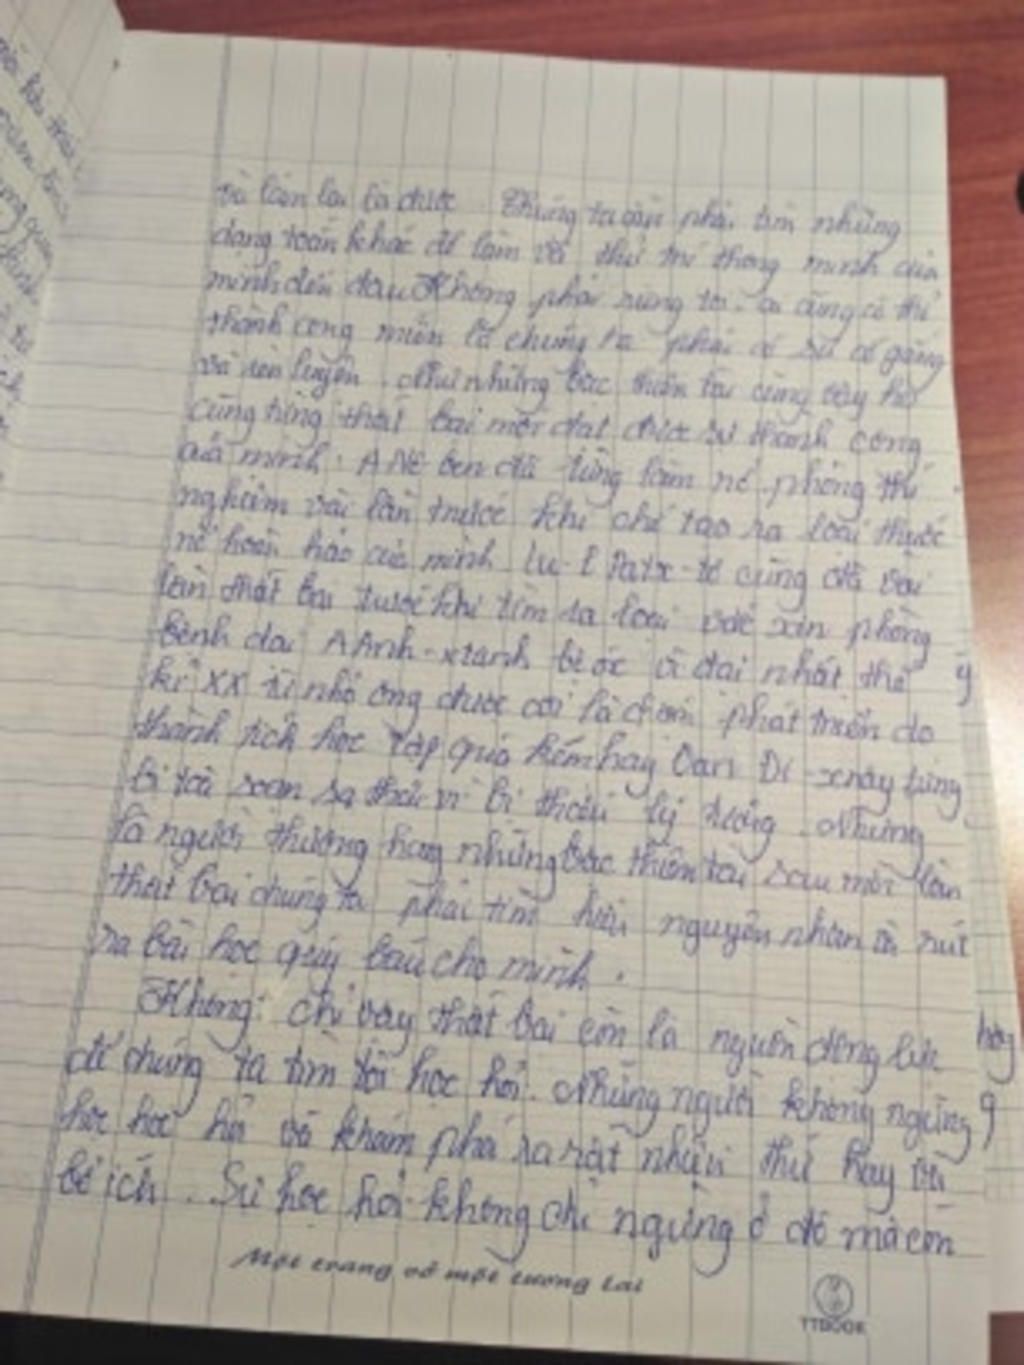 và làm lại là được. Chúng ta cần phải tìm những
dạng toán khác để làm và thử trí thông minh của
mình đến đâu. Không phải riêng tôi, ai cũng có thể
thành công miễn là chúng ta phải có sự cố gắng
và rèn luyện. Như những bậc thiên tài cũng vậy họ
cũng từng thất bại mới đạt được sự thành công
của mình. A Nê ben đã từng làm nổ phòng thí
nghiệm vài lần trước khi chế tạo ra loại thuốc
nổ hoàn hảo của mình. Lu-I Patx-tơ cũng đã vài
lần thất bại trước khi tìm ra loại vắc xin phòng
bệnh dại. A Anh-xtanh bộ óc vĩ đại nhất thế
kỉ XX từ nhỏ ông được coi là chậm phát triển do
thành tích học tập quá kém hay Oan Đi-xnây từng
bị toà soạn sa thải vì bị thiếu ý tưởng. Nhưng
là người thường hay những bậc thiên tài sau mỗi lần
thất bại chúng ta phải tìm hiểu nguyên nhân và rút
ra bài học quý báu cho mình.
Không chỉ vậy thất bại còn là nguồn động lực
để chúng ta tìm tòi học hỏi. Những người không ngừng
học học hỏi và khám phá ra rất nhiều thứ hay và
bổ ích. Sự học hỏi không chỉ ngừng ở đó mà còn
Một trang vở một tương lai
TTBOOK